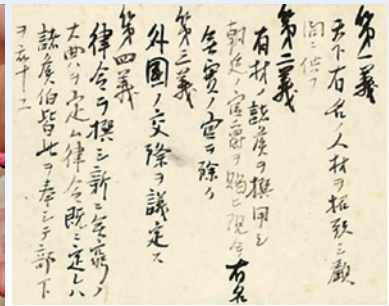 第一義
天下有名ノ人材ヲ招致シ顧
問ニ供フ
第二義
有材ノ諸侯ヲ撰用シ
朝廷ノ官爵ヲ賜ヒ現今有名
無実ノ官ヲ除ク
第三義
外国ノ交際ヲ議定ス
第四義
律令ヲ撰シ新ニ無窮ノ
大典ヲ定ム律令既ニ定レハ
諸侯伯皆此ヲ奉シテ部下
ヲ率ユ